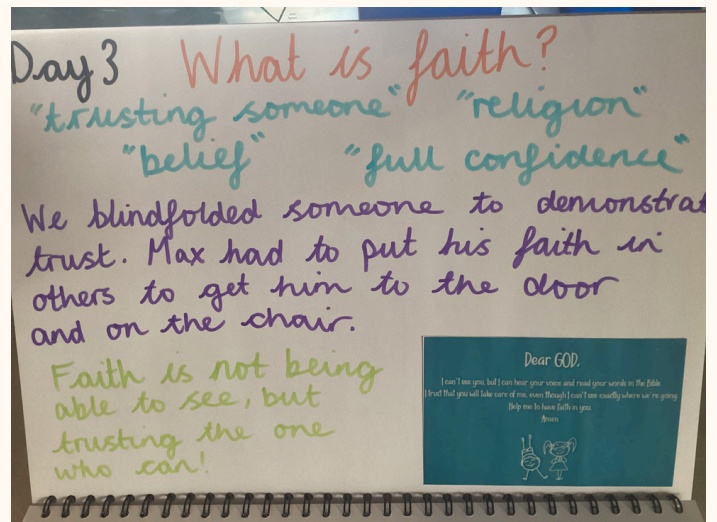 Day 3 What is faith?
"trusting someone" "religion"
"belief" "full confidence"
We blindfolded someone to demonstrat
trust. Max had to put his faith in
others to get him to the door
and on the chair.
Faith is not being
able to see, but
trusting the one
who can!
Dear GOD,
I can't see you, but I can hear your voice and read your words in the Bible
I trust that you will take care of me, even though I can't see exactly where we're going.
Help me to have faith in you.
Amen